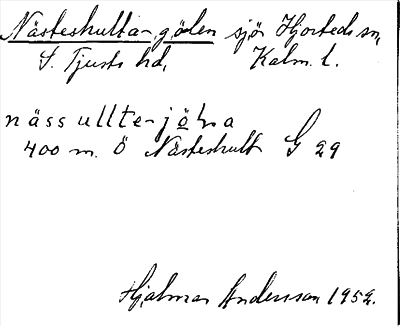 Nästeshulta-gölen sjö Hjorteds sn,
S. Tjusts hd, Kalm. l.
näss ullte-jö̲l a
400 m. Ö Nästeshult G 29
Hjalmar Andersson 1952.